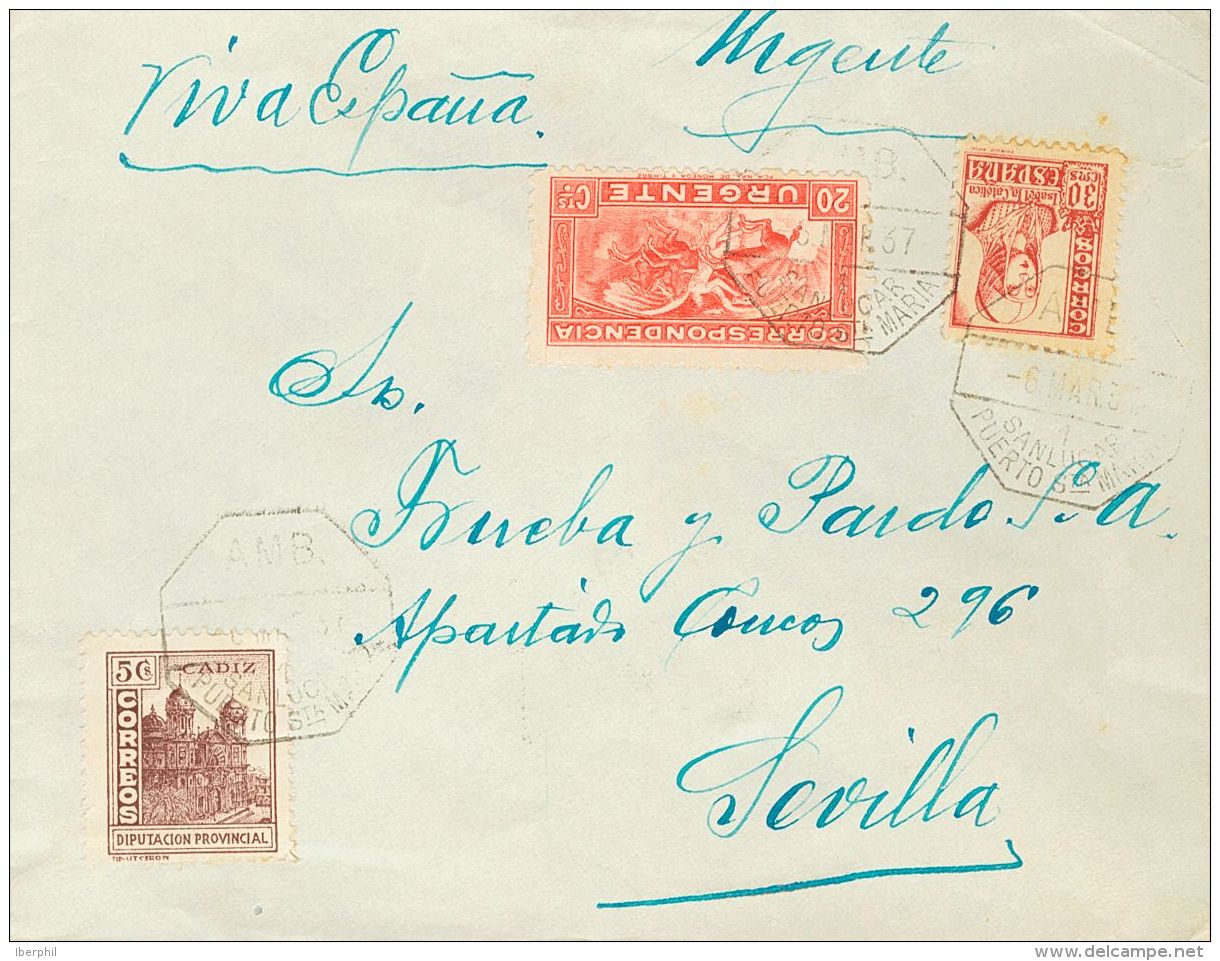 Viva España.
Urgente
FCA. NAL. DE MONEDA Y TIMBRE
20 URGENTE Cts
CORRESPONDENCIA
30 cts ESPAÑA
Isabel la Católica
CORREOS
SANLUCAR
PUERTO STA MARIA
-6.MAR.37
1
SANLUCAR
PUERTO STA MARIA
Sr.
Prueba y Pardo. S. A.
Apartado Correos 296
Sevilla
AMB.
SANLUCAR
PUERTO STA
5 Cs. CADIZ
CORREOS
DIPUTACION PROVINCIAL
Iberphil
delcampe.net